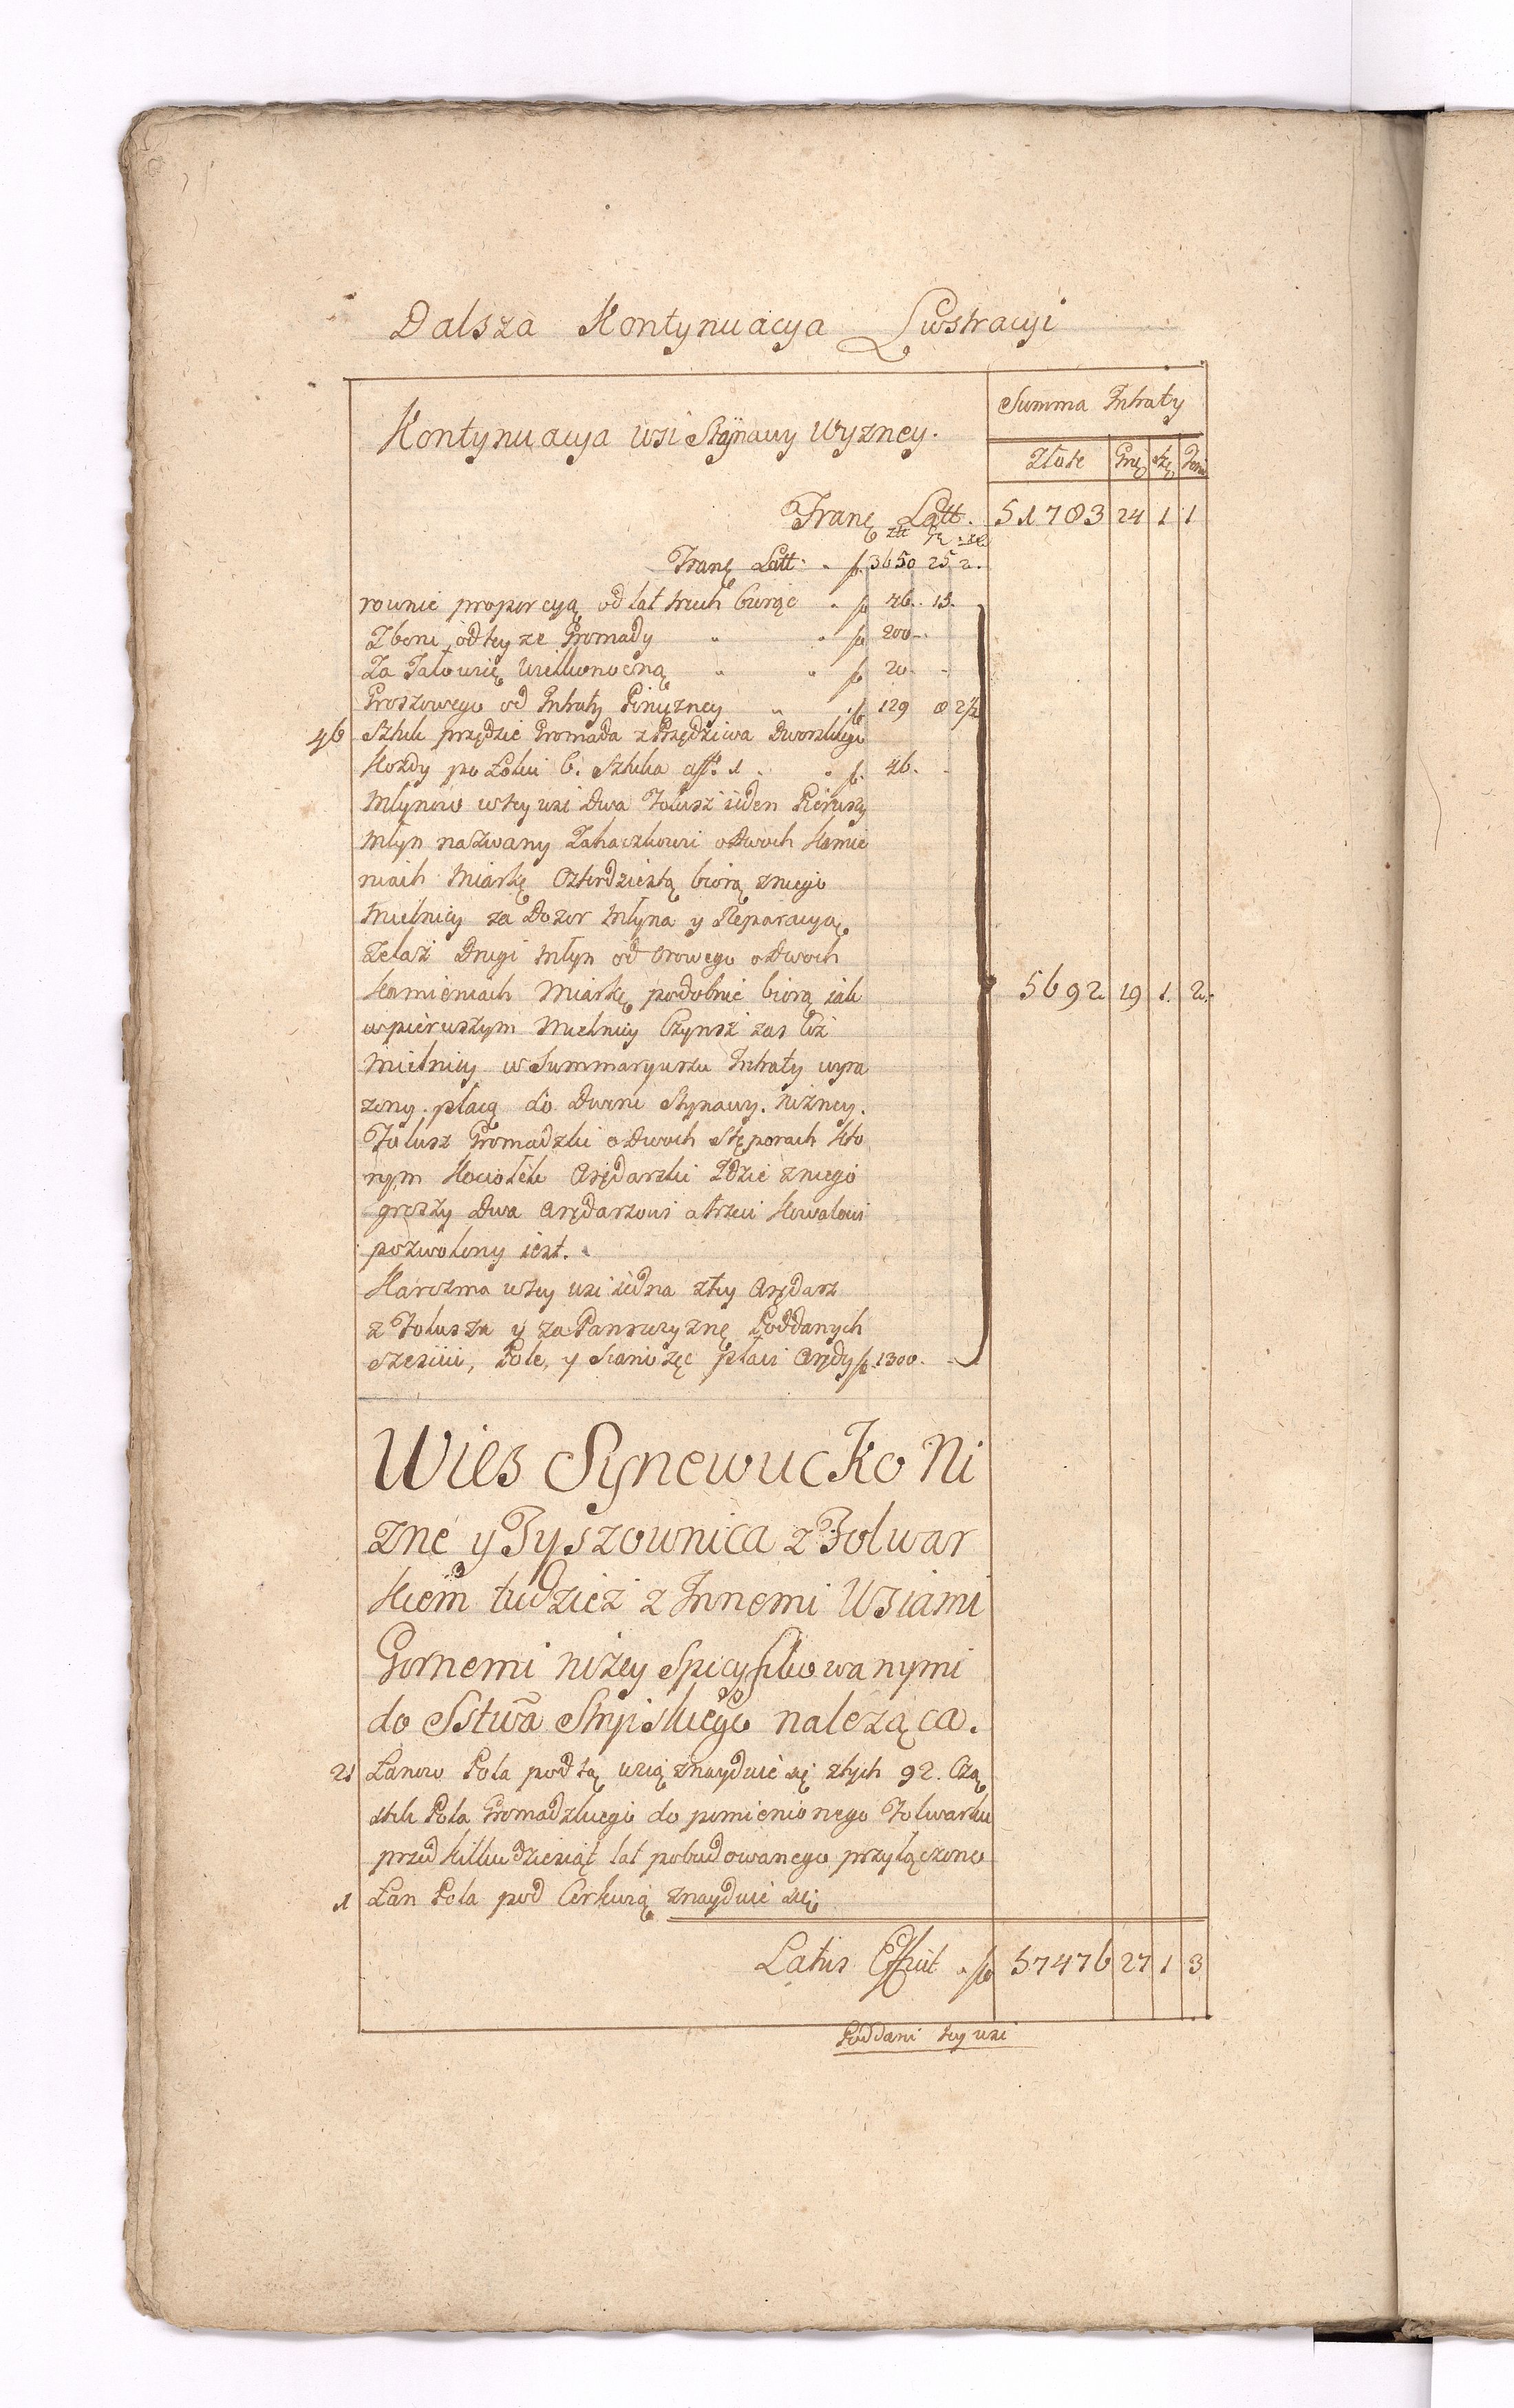 Dalsza Kontynuacya Lustracyi
Kontynuacya wsi Stÿnawy Wyzney.
Summa Intraty
Złote Gro Szę Feni
Tranę Latt. 51783 24 1 1
złł gr sz
Tranę Latt. " fl. 3650 25 2.
rownie proporcyą od lat trzech biorąc " fl 46. 15.
Zboru od teyze Gromady " " fl 200 -
Za Jałowicę Wielkonocną " " fl 20 - -
Groszowego od Intraty Pinięzney " fl 129 8 2½
46 Sztuk przędzie Gromada z Przędziwa Dworskiego
Kozdy po Łokci 6. Sztuka aff. 1 . " fl. 46. -
Młynow w tey wsi Dwa Folusz ieden Pierwszy
Młyn nazwany Zahaczkowri o Dwoch Kamie
niach Miarkę Czterdziestą biorą z niego
Mielnicy za Dozor Młyna y Reparacyą
Zelaz Drugi Młyn od Orowego o Dwoch
Kamieniach Miarkę podobnie biorą iak
w pierwszym Mielnicy Czynsz zas Ciż 5692. 19 1. 2.
Mielnicy w Summaryuszu Intraty wyra
zony. płacą do Dworu Stynawy. Nizney.
Folusz Gromadzki o Dwoch Stęporach Kto
rym Kociołek Arędarski Idzie z niego
groszy Dwa Arędarzowi a trzeci Kowalowi
pozwolony iest.
Karczma w tey wsi iedna z tey Arędarz
z Folusza y za Panszczyznę Poddanych
szesciu, Pole, y Sianozęc płaci Arędy fl. 1300. -
Wies Synewucko Ni
zne y Tyszownica z Folwar
kiem tudziez z Innemi Wsiami
Gornemi nizey Specyfikowanymi
do Sstwa Stryiskiego naleząca.
21 Łanow Pola pod tą wsią znayduie się z tych 9 2. Czą
stek Pola Gromadzkiego do pomienionego Folwarku
przed kilku dziesiąt lat pobudowanego przyłączono
1 Łan Pola pod Cerkwią znayduie się
Latus Efficit " fl 57476 27 1 3
Poddani tey wsi